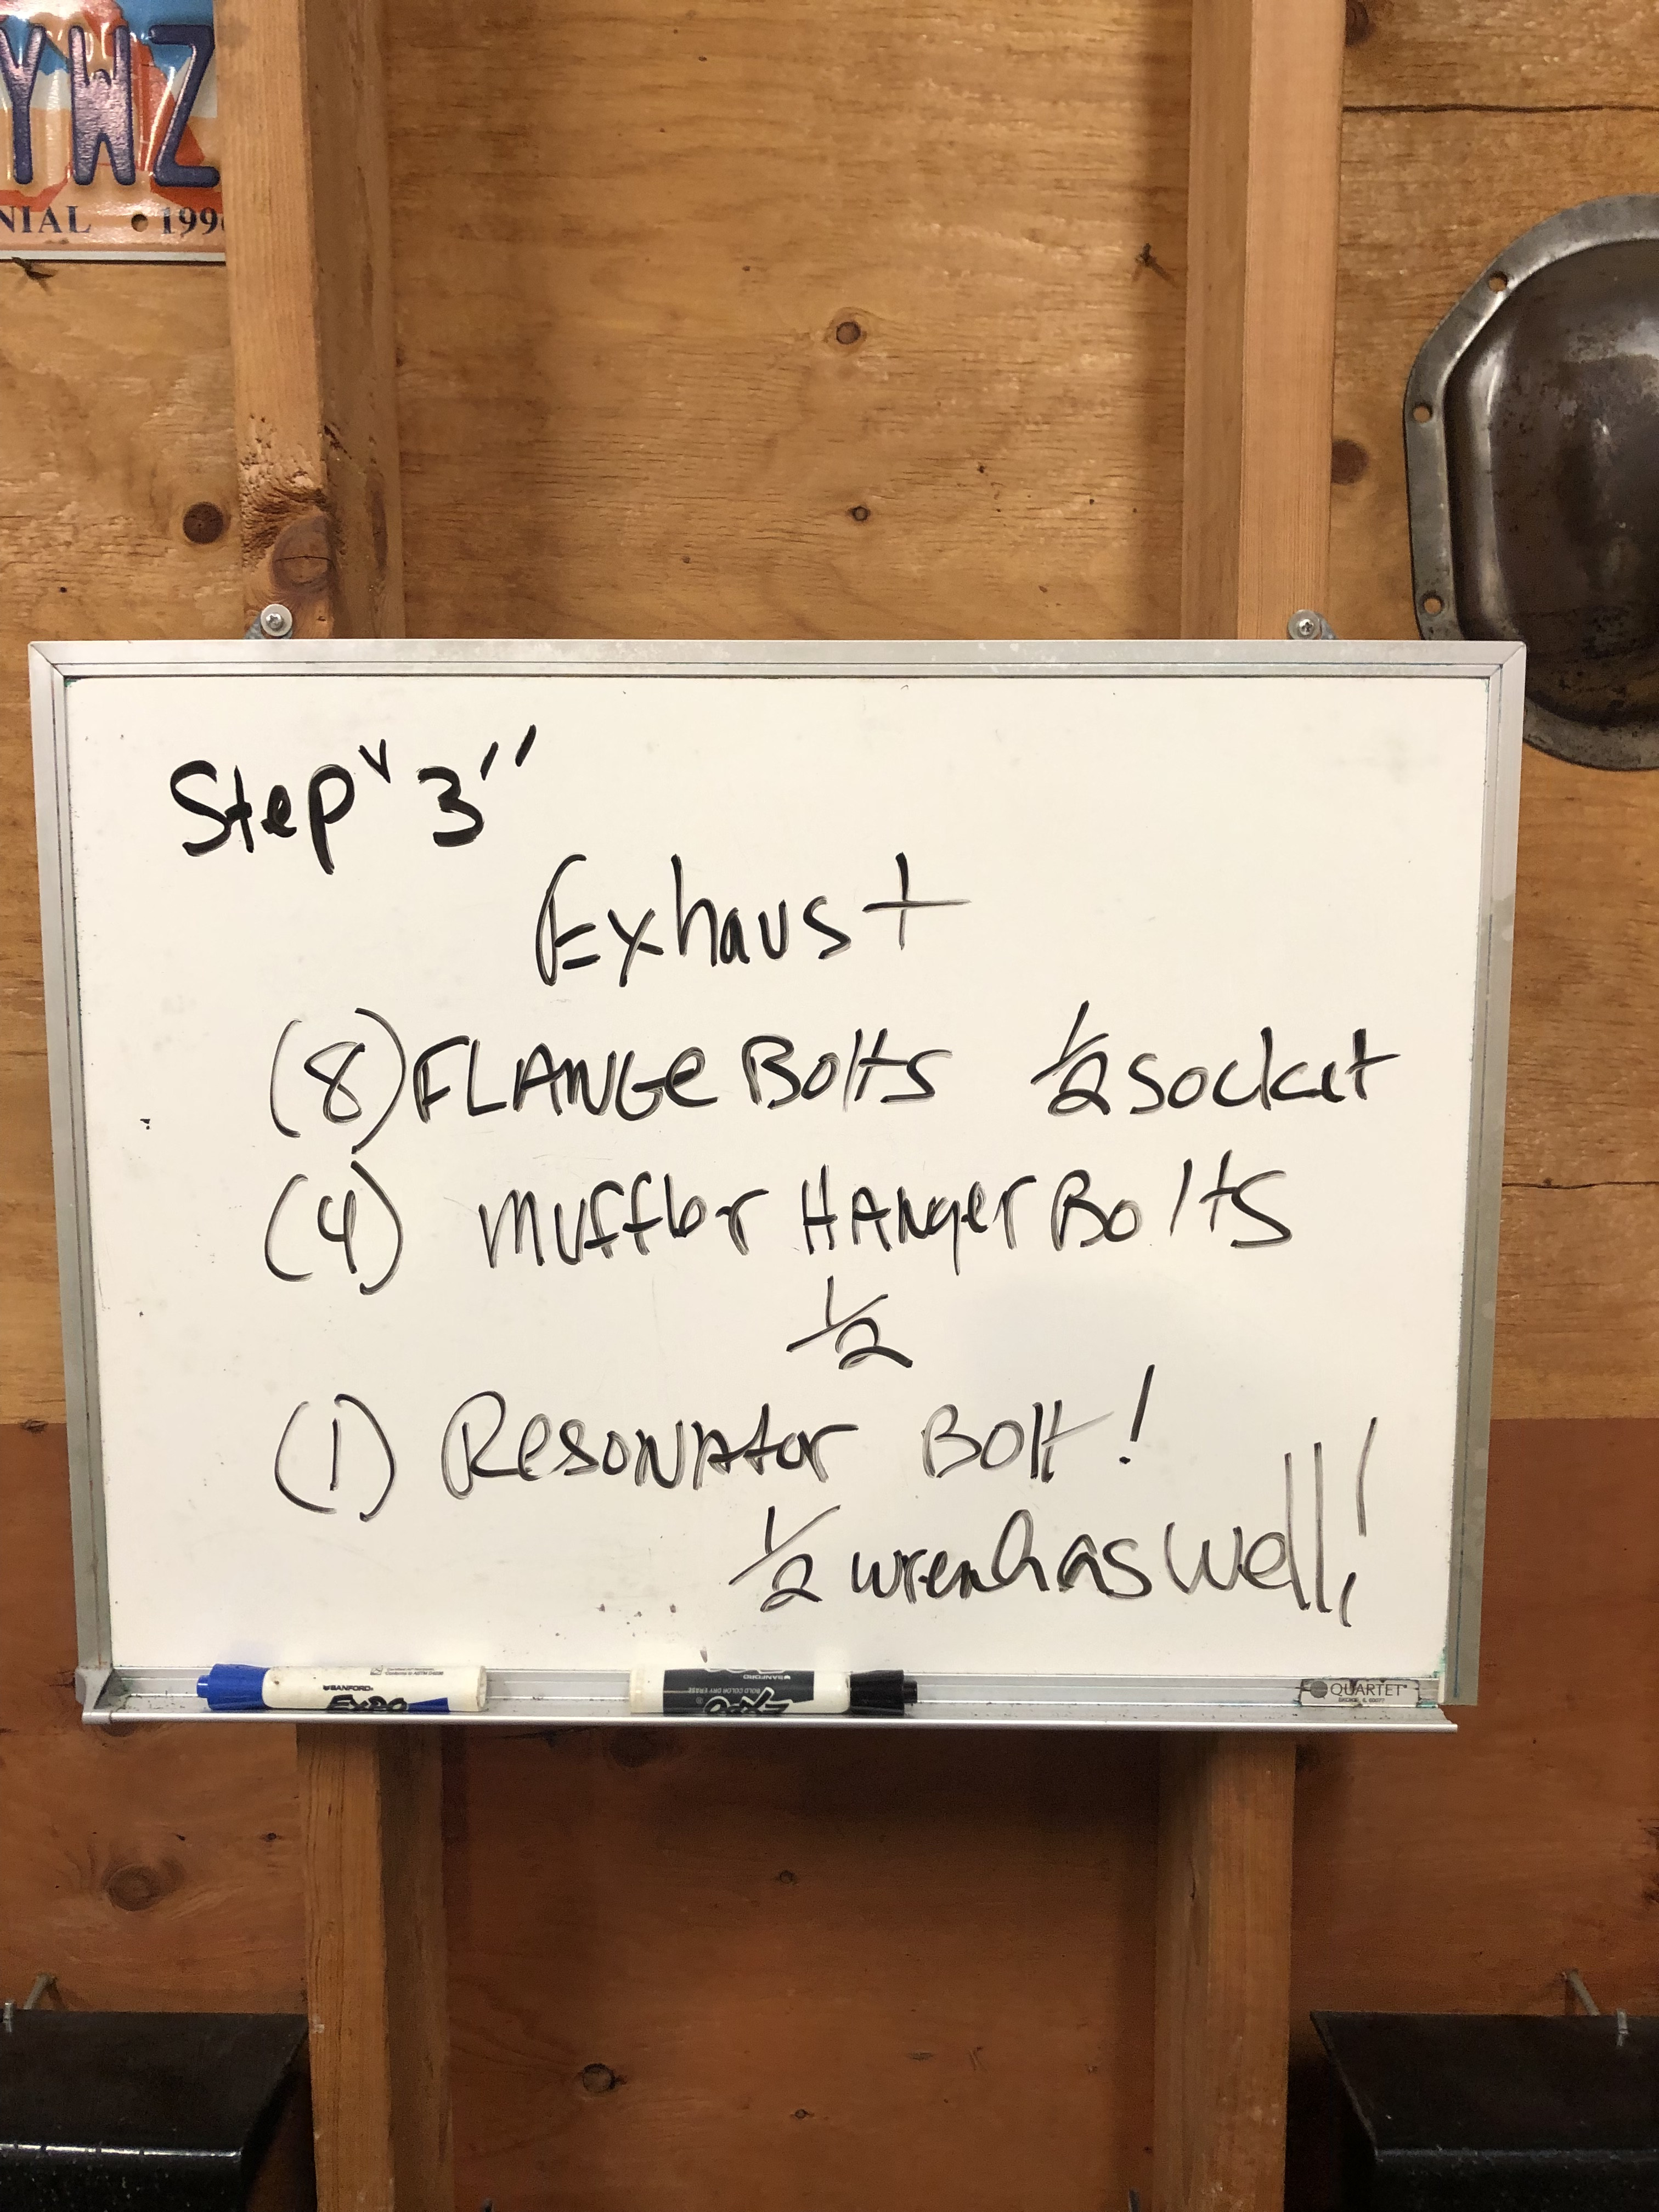 YWZ
NIAL • 199
Step "3"
Exhaust
(8) FLANGe Bolts 1/2 socket
(4) Muffler HAnger Bolts
1/2
(1) ResonAtor Bolt!
1/2 wrench as well!
SANFORD
EXPO
SANFORD
BOLD COLOR DRY ERASE
EXPO
QUARTET